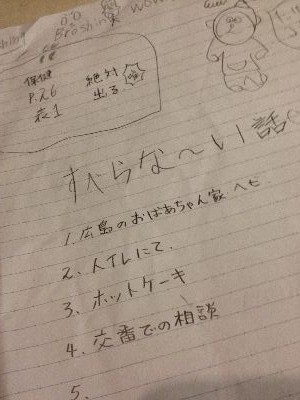 保健
P.26
表1
絶対
出る
すべらな〜い話
1. 広島のおばあちゃん家 ヘビ
2. トイレにて.
3. ホットケーキ
4. 交番での相談
5.